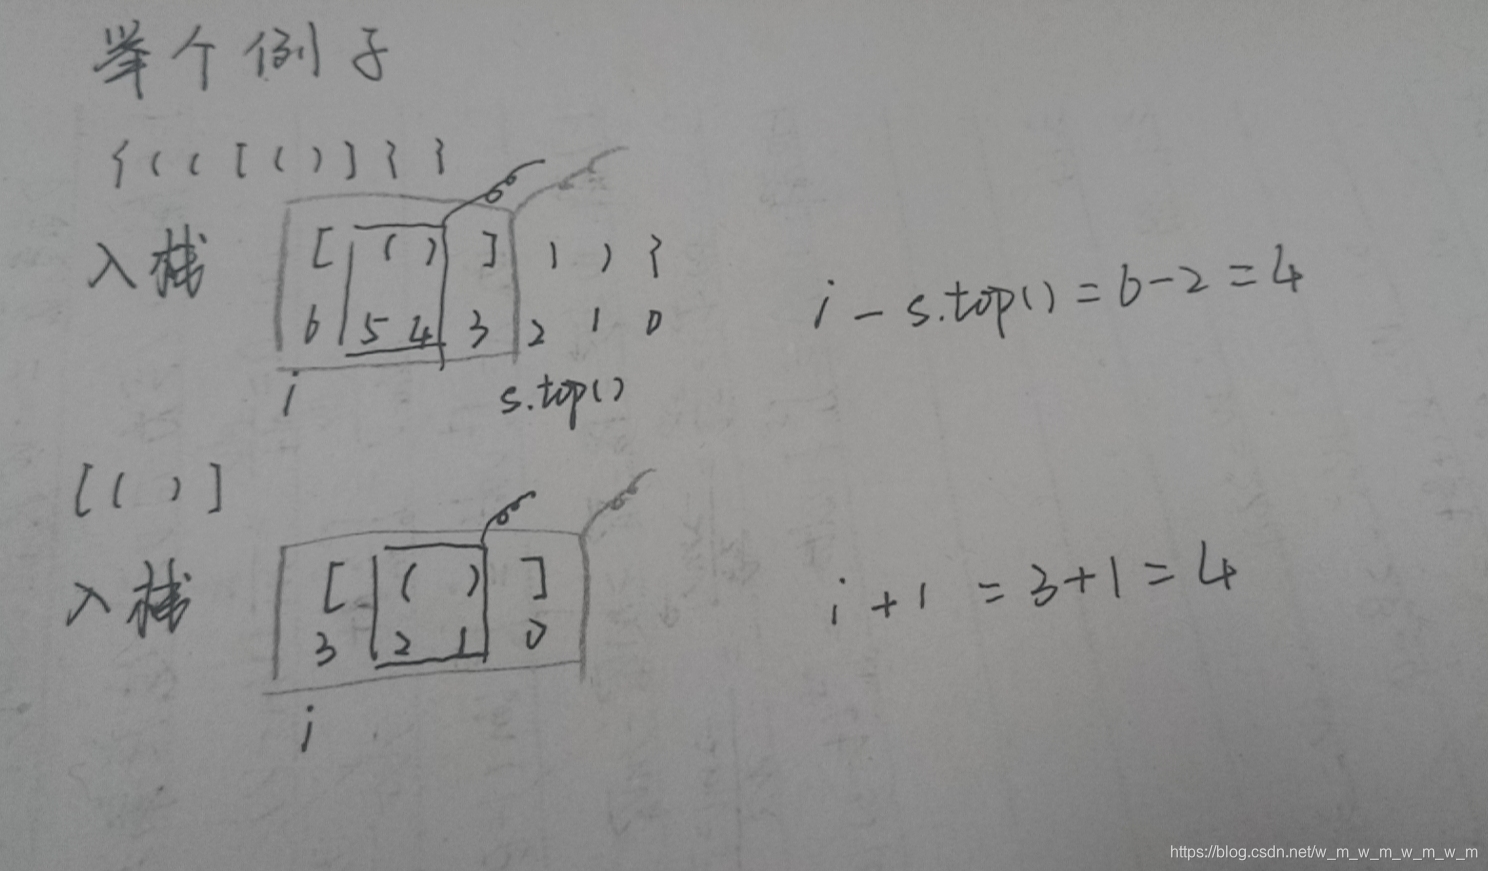 举个例子
{ ( ( [ ( ) ] } }
入栈 [ ( ) ] ) ) }
6 5 4 3 2 1 0
i s.top()
i - s.top() = 6-2 = 4
[ ( ) ]
入栈 [ ( ) ]
3 2 1 0
i
i + 1 = 3+1 = 4
https://blog.csdn.net/w_m_w_m_w_m_w_m